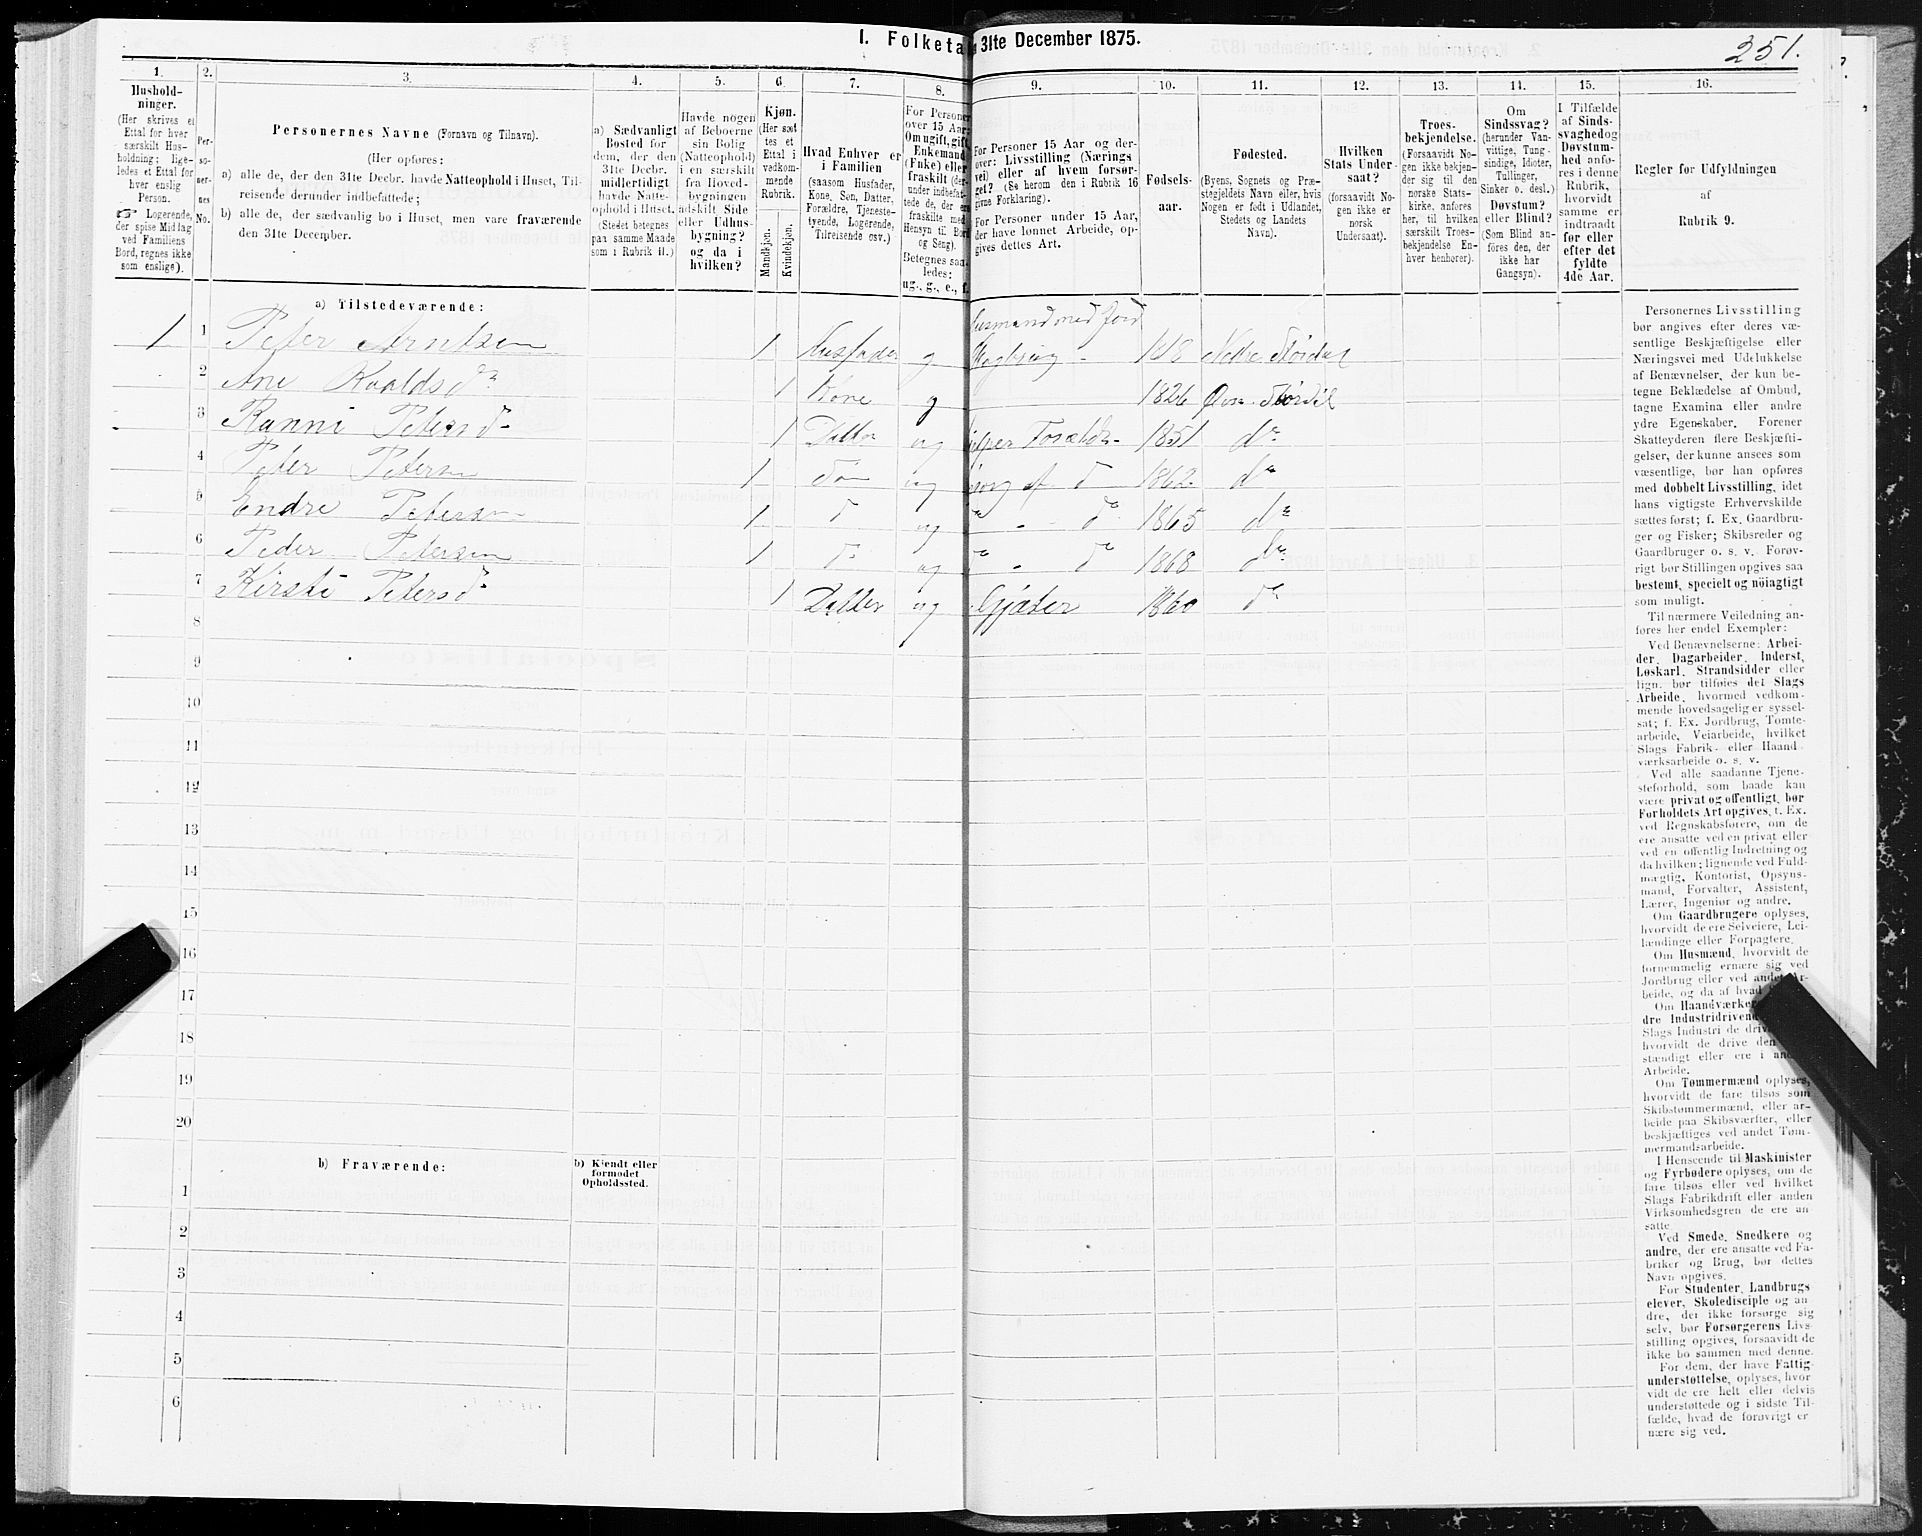 I. Folketa
31te December 1875.
251.
1.
Hushold-
ninger.
(Her skrives et
Ettal for hver
særskilt Hus-
holdning; lige-
ledes et Ettal for
hver enslig
Person.
Logerende,
der spise Middag
ved Familiens
Bord, regnes ikke
som enslige).
2.
Per-
so-
ner-
nes
No.
3.
Personernes Navne (Fornavn og Tilnavn).
(Her opføres:
a) alle de, der den 31te Decbr. havde Natteophold i Huset, Til-
reisende derunder indbefattede;
b) alle de, der sædvanlig bo i Huset, men vare fraværende
den 31te December).
4.
a) Sædvanligt
Bosted for
dem, der den
31te Decbr.
midlertidigt
havde Natte-
ophold i Huset.
(Stedet betegnes
paa samme Maade
som i Rubrik 11.)
5.
Havde nogen
af Beboerne
sin Bolig
(Natteophold)
i en særskilt
fra Hoved-
bygningen
adskilt Side
eller Udhus-
bygning?
og da i
hvilken?
6.
Kjøn.
(Her sæt
tes et
Ettal i
vedkom-
mende
Rubrik.
Mandkjøn.
Kvindekjøn.
7.
Hvad Enhver er
i Familien
(saasom Husfader,
Kone, Søn, Datter,
Forældre, Tjeneste-
tyende, Logerende,
Tilreisende osv.)
8.
For Personer
over 15 Aar:
Om ugift, gift,
Enkemand
(Enke) eller
fraskilt (der-
under indbefat-
tede de, der ere
fraskilte med
Hensyn til Bord
og Seng).
Betegnes saa-
ledes:
ug., g., e., f.
9.
For Personer 15 Aar og der-
over: Livsstilling (Nærings
vei) eller af hvem forsør-
get? (Se herom den i Rubrik 16
givne Forklaring).
For Personer under 15 Aar,
der have lønnet Arbeide, op-
gives dettes Art.
10.
Fødsels-
aar.
11.
Fødested.
(Byens, Sognets og Præ-
stegjeldets Navn eller, hvis
Nogen er født i Udlandet,
Stedets og Landets
Navn).
12.
Hvilken
Stats Under-
saat?
(forsaavidt No-
gen ikke er
norsk
Undersaat).
13.
Troes-
bekjendelse.
(Forsaavidt No-
gen ikke bekjen-
der sig til den
norske Stats-
kirke, anføres
her, til hvilken
særskilt Troes-
bekjendelse En-
hver henhører).
14.
Om
Sindssvag?
(herunder Van-
vittige, Tung-
sindige, Idioter,
Tullinger,
Sinker o. desl.)
Døvstum?
eller Blind?
(Som Blind an-
føres den, der
ikke har
Gangsyn).
15.
I Tilfælde
af Sinds-
svaghed og
Døvstum-
hed anfø-
res i denne
Rubrik,
hvorvidt
samme er
indtraadt
før eller
efter det
fyldte
4de Aar.
16.
Regler for Udfyldningen
af
Rubrik 9.
a) Tilstedeværende:
1 1 Peter Arntsen 1 Husfader g Husmand med Jord 1818 Nedre Stordal
2 Ane Roaldsdr 1 Kone g 1826 Øvre Stordal
3 Ranni Petersd 1 Datter ug hjelper Forældr 1851 do
4 Peter Petersen 1 Søn ug sørg af d 1862 do
5 Endre Petersen 1 d ug do " do 1865 do
6 Peder Petersen 1 do ug " " do 1868 do
7 Kirsti Petersd 1 Datter ug Gjæter 1860 do
8
9
10
11
12
13
14
15
16
17
18
19
20
b) Fraværende:
b) Kjendt eller
formodet
Opholdssted.
1
2
3
4
5
6
Personernes Livsstilling
bør angives efter deres væ-
sentlige Beskjæftigelse eller
Næringsvei med Udelukkelse
af Benævnelser, der kun be-
tegne Beklædelse af Ombud,
tagne Examina eller andre
ydre Egenskaber. Forener
Skatteyderen flere Beskjæfti-
gelser, der kunne ansees som
væsentlige, bør han opføres
med dobbelt Livsstilling, idet
hans vigtigste Erhvervskilde
sættes først; f. Ex. Gaardbru-
ger og Fisker; Skibsreder og
Gaardbruger o. s. v. Forøv-
rigt bør Stillingen opgives saa
bestemt, specielt og nøiagtigt
som muligt.
Til nærmere Veiledning an-
føres her endel Exempler:
Ved Benævnelserne: Arbei-
der, Dagarbeider, Inderst,
Løskarl, Strandsidder eller
lign. bør tilføies det Slags
Arbeide, hvormed vedkom-
mende hovedsagelig er syssel-
sat; f. Ex. Jordbrug, Tomte-
arbeide, Veiarbeide, hvilket
Slags Fabrik- eller Haand-
værksarbeide o. s. v.
Ved alle saadanne Tjene-
steforhold, som baade kan
være privat og offentligt, bør
Forholdets Art opgives, t. Ex.
ved Regnskabsførere, om de
ere ansatte ved en privat eller
ved en offentlig Indretning og
da hvilken; lignende ved Fuld-
mægtig, Kontorist, Opsyns-
mand, Forvalter, Assistent,
Lærer, Ingeniør og andre.
Om Gaardbrugere oplyses,
hvorvidt de ere Selveiere, Lei-
lændinge eller Forpagtere.
Om Husmænd, hvorvidt de
fornemmelig ernære sig ved
Jordbrug eller ved andet Ar-
beide, og da af hvad
Om Haandværker
dre Industridrivend
Slags Industri de driv
hvorvidt de drive den
stændigt eller ere i an
Arbeide.
Om Tømmermænd oplyses,
hvorvidt de fare tilsøs som
Skibstømmermænd, eller ar-
beide paa Skibsværfter, eller
beskjæftiges ved andet Tøm-
mermandsarbeide.
I Henseende til Maskinister
og Fyrbødere oplyses, om de
fare tilsøs eller ved hvilket
Slags Fabrikdrift eller anden
Virksomhedsgren de ere an-
satte.
Ved Smede, Snedkere og
andre, der ere ansatte ved Fa-
briker og Brug, bør dettes
Navn opgives.
For Studenter, Landbrugs
elever, Skoledisciple og an-
dre, der ikke forsørge sig
selv, bør Forsørgerens Livs-
stilling opgives, forsaavidt de
ikke bo sammen med denne.
For dem, der have Fattig-
understøttelse, oplyses, hvor
vidt de ere helt eller delvis
understøttede og i sidste Til-
fælde, hvad de forøvrigt er
nære sig ved.